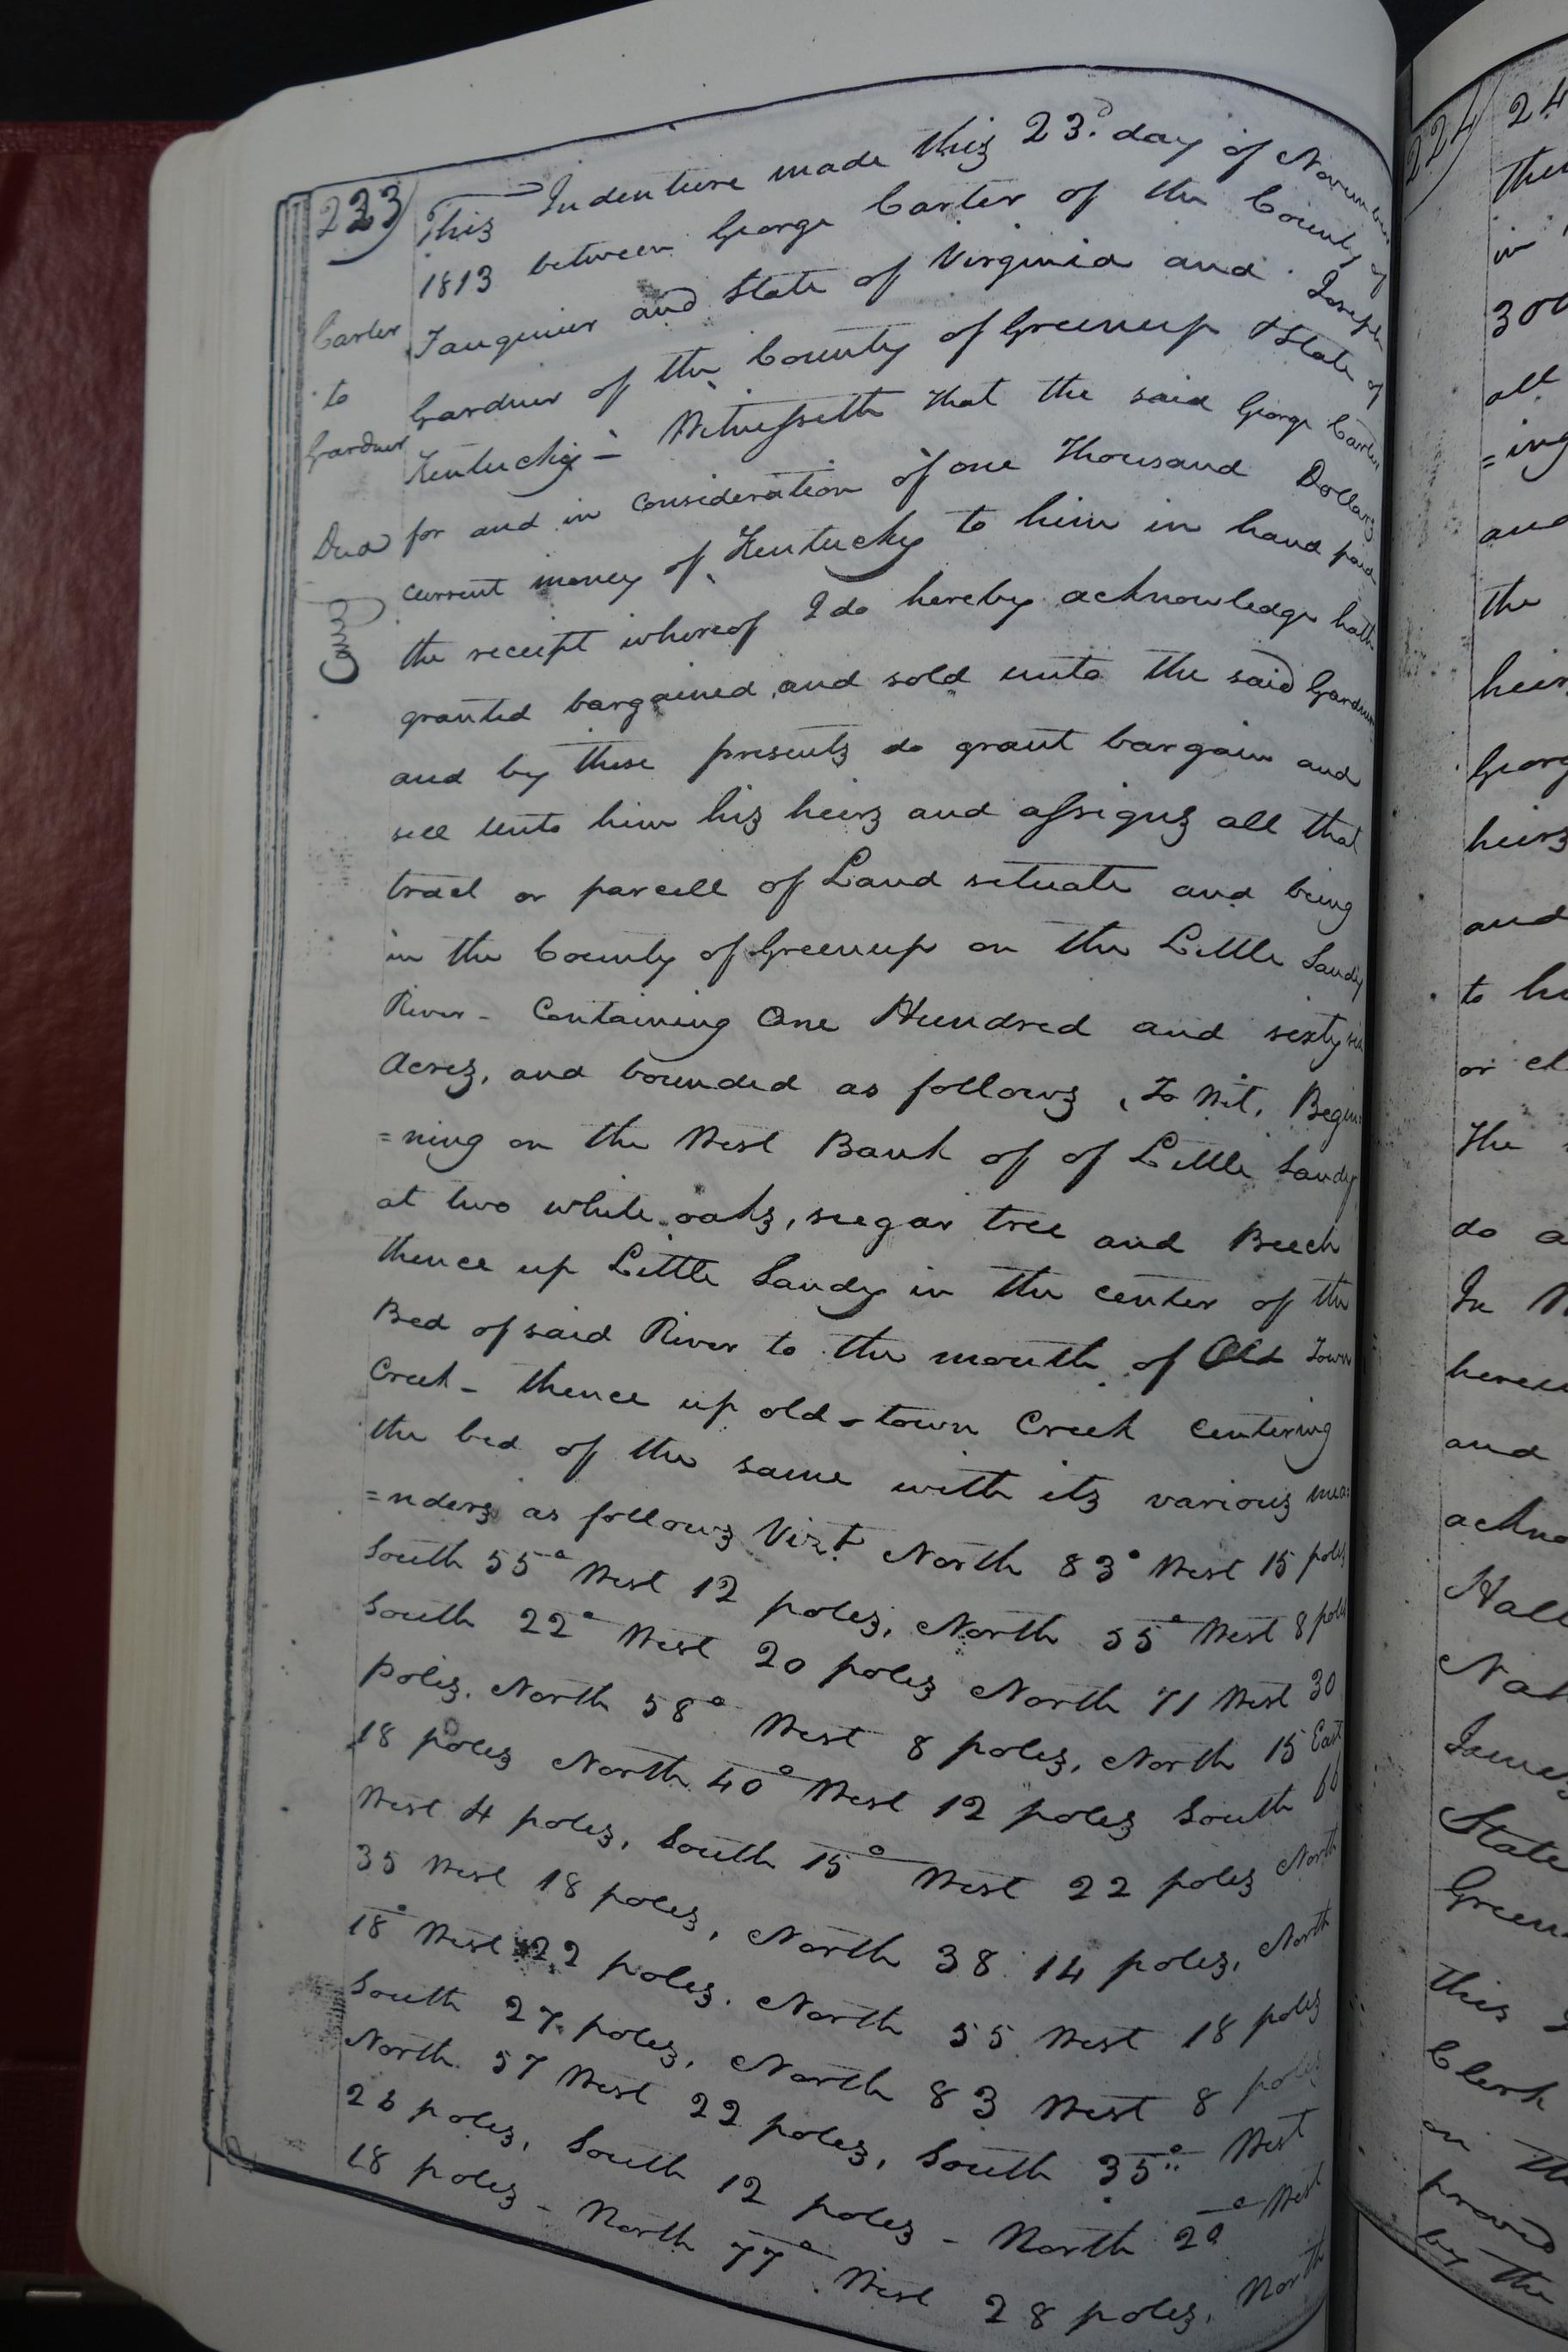 223
This Indenture made this 23d. day of November
1813 between George Carter of the County of
Fauquier and State of Virginia and Joseph
Gardner of the County of Greenup & State of
Kentucky - Witnesseth that the said George Carter
for and in consideration of one Thousand Dollars
current money of Kentucky to him in hand paid
the receipt whereof I do hereby acknowledge hath
granted bargained and sold unto the said Gardner
and by these presents do grant bargain and
sell unto him his heirs and assigns all that
tract or parcell of Land situate and being
in the County of Greenup on the Little Sandy
River - Containing One Hundred and sixty six
Acres, and bounded as follows, To Wit, Begin
=ning on the West Bank of of Little Sandy
at two white oaks, seegar tree and Beech
thence up Little Sandy in the center of the
Bed of said River to the mouth of Old Town
Creek - thence up old-town Creek centering
the bed of the same with its various mea=
=nders as follows Vizt North 83° West 15 poles
South 55° West 12 poles, North 55° West 8 poles
South 22° West 20 poles North 71 West 30
poles. North 58° West 8 poles, North 15 East
18 poles North 40° West 12 poles South 66
West 4 poles, South 15° West 22 poles North
35 West 18 poles, North 38 14 poles, North
18° West 22 poles. North 55 West 18 poles
South 27 poles, North 83 West 8 poles
North 57 West 22 poles, South 35° West
26 poles, South 12 poles - North 20° West
18 poles - North 77° West 28 poles, North
Carter
to
Gardner
Deed
224
24
then
in
300
all
=ing
and
the
heir
Georg
heirs
and
to
or
The
do
In
here
and
ackno
Hall
Nat
James
State
Green
this
Clerk
on th
proved
by the